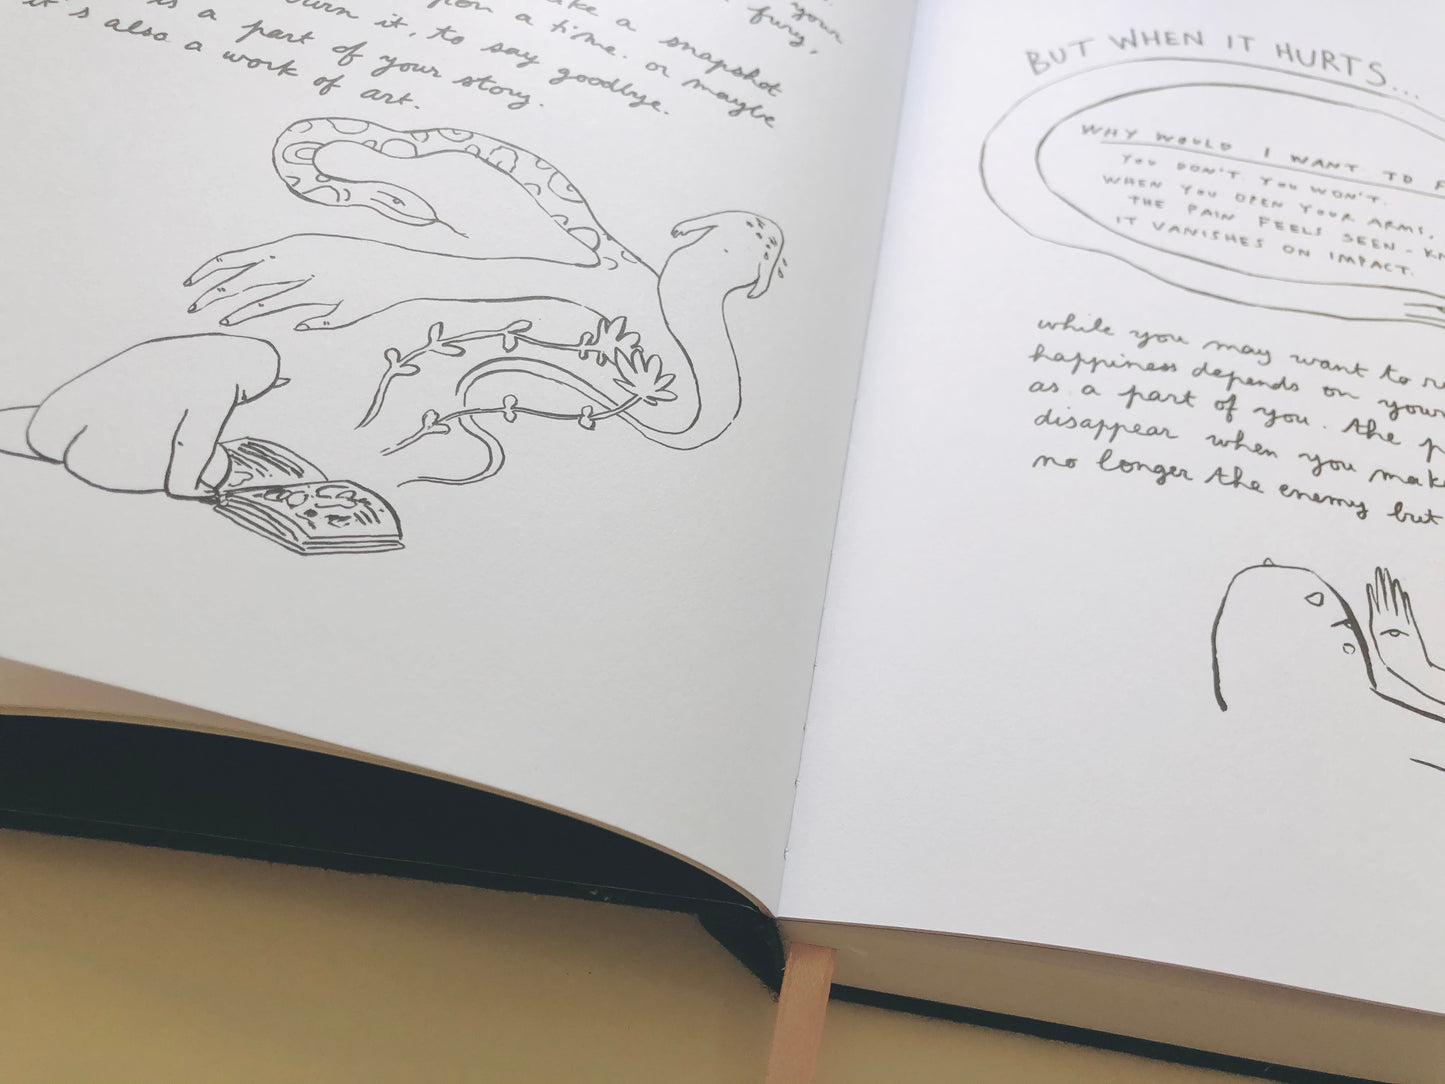 your
ake a fury,
from a time. or snapshot
burn it, to say maybe
is a part of your goodbye.
it's also a work story.
of art.
BUT WHEN IT HURTS...
WHY WOULD I WANT TO F
YOU DON'T. YOU WON'T.
WHEN YOU OPEN YOUR ARMS,
THE PAIN FEELS SEEN - KN
IT VANISHES ON IMPACT.
while you may want to
happiness depends on your
as a part of you. the p
disappear when you mak
no longer the enemy but